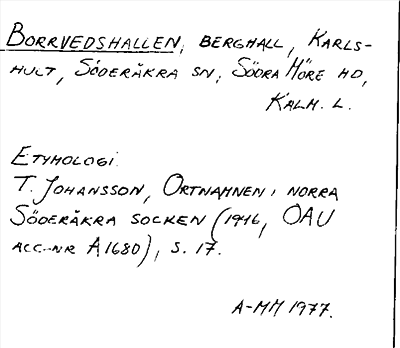 BORRVEDSHALLEN, BERGHALL, KARLS-
HULT, SÖDERÅKRA SN, SÖDRA MÖRE HD,
KALM. L.
ETYMOLOGI.
T. JOHANSSON, ORTNAMNEN I NORRA
SÖDERÅKRA SOCKEN (1946, OAU
ACC.-NR A1680), S. 17.
A-MM 1977.